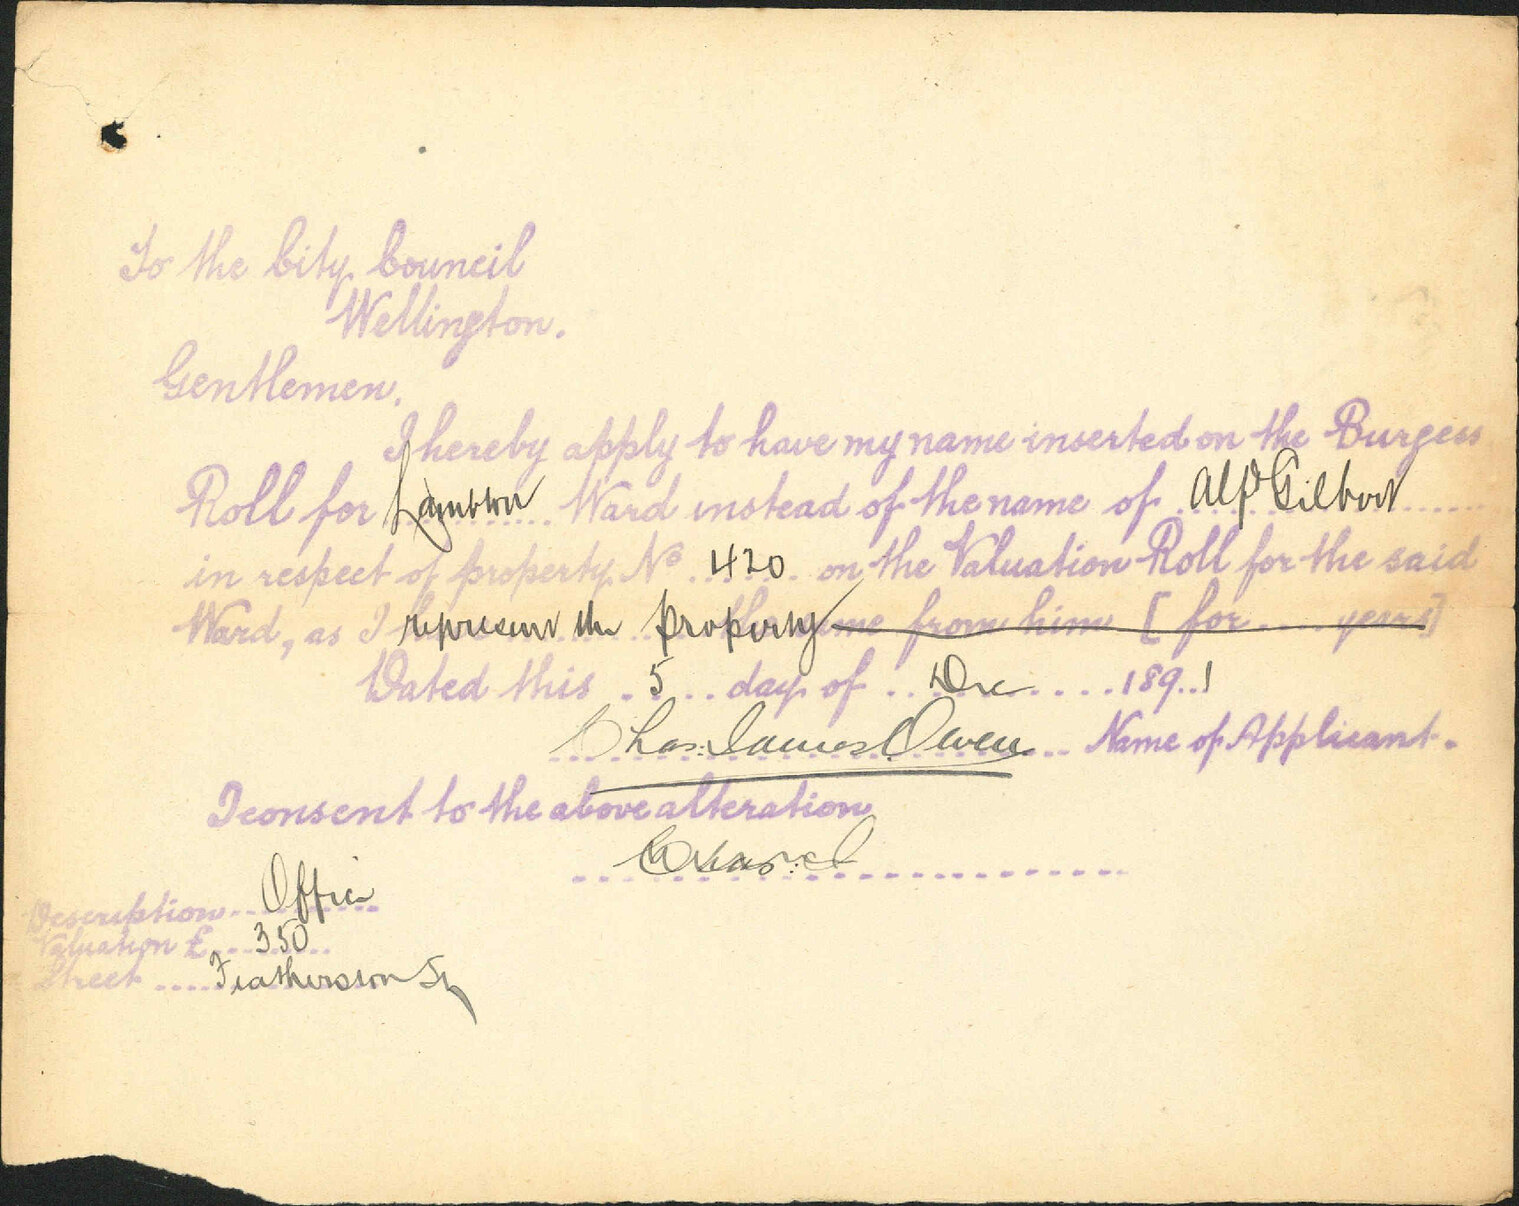 To the City Council
Wellington.
Gentlemen.
I hereby apply to have my name inserted on the Burgess
Roll for Lambton Ward instead of the name of Alfd Gilbert
in respect of property No 420 on the Valuation Roll for the said
Ward, as I represent the property the same from him [for .... years]
Dated this 5 day of Dec 1891
Chas: James Owen Name of Applicant.
I consent to the above alteration
Description Office
Valuation £ 350
Street Featherston St